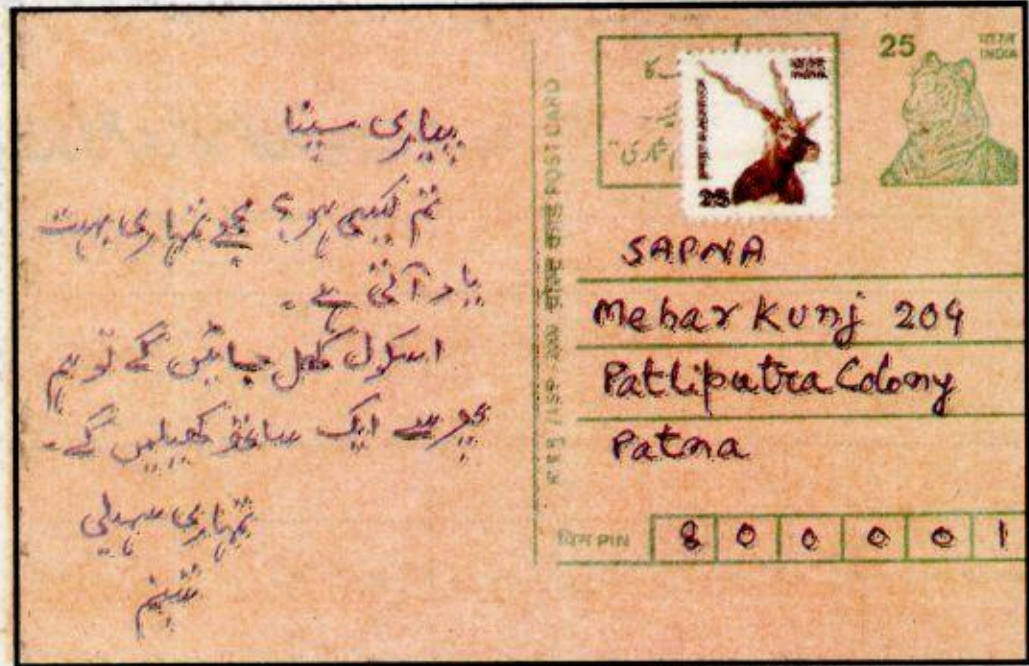 پیاری سپنا
تم کیسی ہو؟ مجھے تمہاری بہت
یاد آتی ہے۔
اسکول کھل جائیں گے تو ہم
پھر سے ایک ساتھ کھیلیں گے۔
تمہاری سہیلی
شبنم
पोस्ट कार्ड POST CARD
25
भारत
INDIA
भारत
INDIA
25
SAPNA
Mehar Kunj 204
Patliputra Colony
Patna
पिन PIN 800001